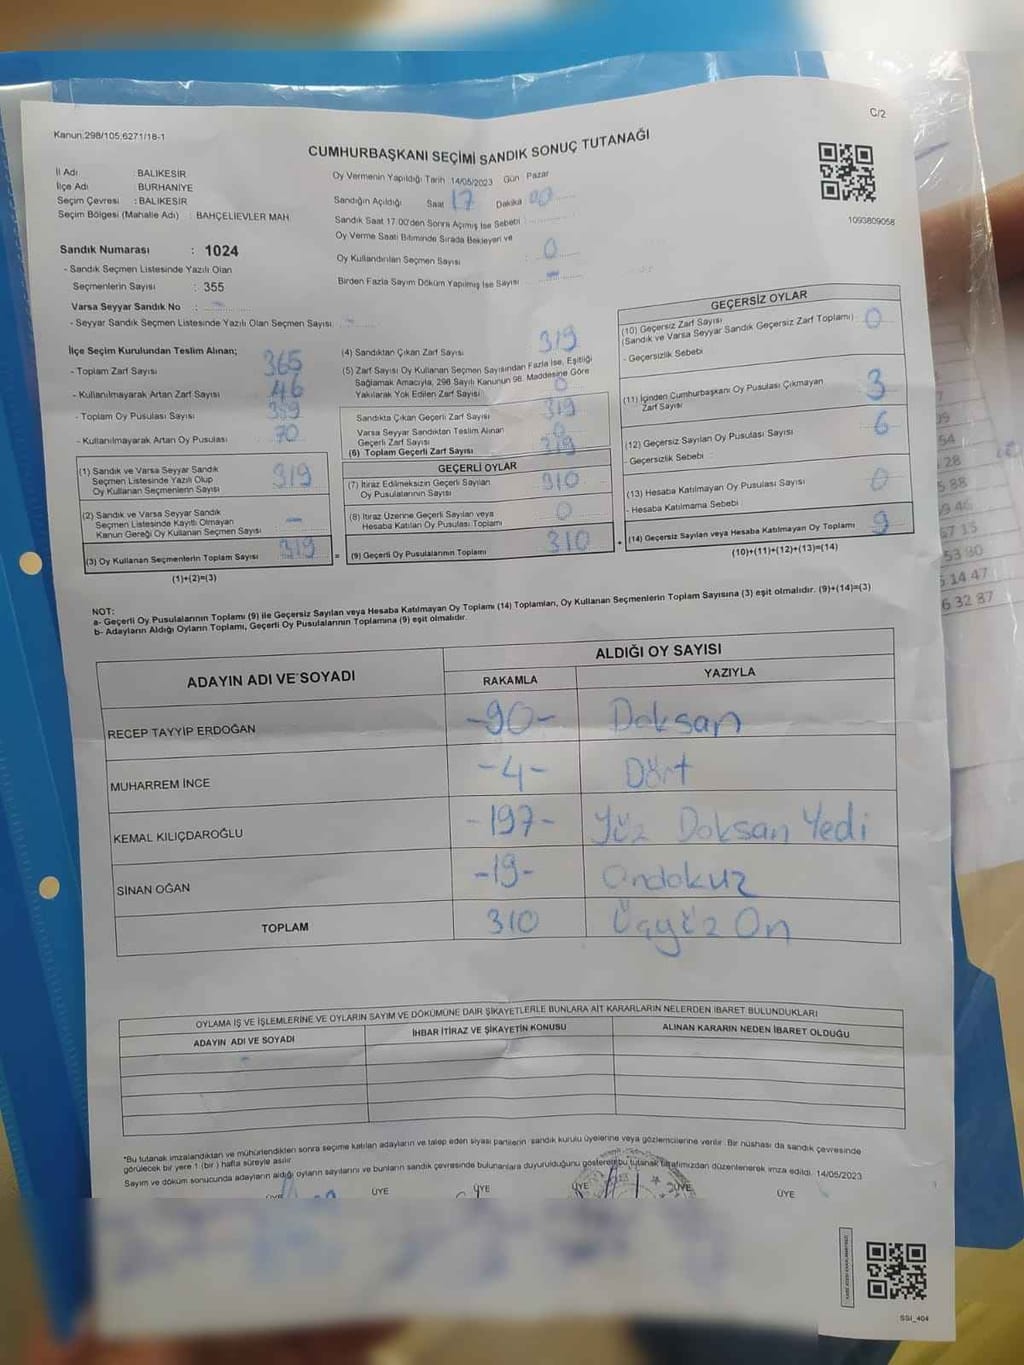 C/2
Kanun:298/105,6271/18-1
CUMHURBAŞKANI SEÇİMİ SANDIK SONUÇ TUTANAĞI
İl Adı : BALIKESİR
İlçe Adı BURHANİYE
Seçim Çevresi : BALIKESİR
Seçim Bölgesi (Mahalle Adı) : BAHÇELİEVLER MAH.
Oy Vermenin Yapıldığı Tarih 14/05/2023 Gün Pazar
Sandığın Açıldığı Saat 17 Dakika 00
Sandık Saat 17.00'den Sonra Açılmış İse Sebebi :
Oy Verme Saati Bitiminde Sırada Bekleyen ve
Oy Kullandırılan Seçmen Sayısı : 0
Birden Fazla Sayım Döküm Yapılmış İse Sayısı : -
1093809058
Sandık Numarası : 1024
- Sandık Seçmen Listesinde Yazılı Olan
Seçmenlerin Sayısı : 355
Varsa Seyyar Sandık No : -
- Seyyar Sandık Seçmen Listesinde Yazılı Olan Seçmen Sayısı : -
İlçe Seçim Kurulundan Teslim Alınan;
- Toplam Zarf Sayısı : 365
- Kullanılmayarak Artan Zarf Sayısı : 46
- Toplam Oy Pusulası Sayısı :
- Kullanılmayarak Artan Oy Pusulası : 70
(1) Sandık ve Varsa Seyyar Sandık
Seçmen Listesinde Yazılı Olup
Oy Kullanan Seçmenlerin Sayısı 319
(2) Sandık ve Varsa Seyyar Sandık
Seçmen Listesinde Kayıtlı Olmayan
Kanun Gereği Oy Kullanan Seçmen Sayısı -
(3) Oy Kullanan Seçmenlerin Toplam Sayısı 319
(1)+(2)=(3)
(4) Sandıktan Çıkan Zarf Sayısı 319
(5) Zarf Sayısı Oy Kullanan Seçmen Sayısından Fazla İse, Eşitliği
Sağlamak Amacıyla, 298 Sayılı Kanunun 98. Maddesine Göre
Yakılarak Yok Edilen Zarf Sayısı 0
Sandıkta Çıkan Geçerli Zarf Sayısı 319
Varsa Seyyar Sandıktan Teslim Alınan
Geçerli Zarf Sayısı 0
(6) Toplam Geçerli Zarf Sayısı 319
GEÇERLİ OYLAR
(7) İtiraz Edilmeksizin Geçerli Sayılan
Oy Pusulalarının Sayısı 310
(8) İtiraz Üzerine Geçerli Sayılan veya
Hesaba Katılan Oy Pusulası Toplamı 0
= (9) Geçerli Oy Pusulalarının Toplamı 310
GEÇERSİZ OYLAR
(10) Geçersiz Zarf Sayısı
(Sandık ve Varsa Seyyar Sandık Geçersiz Zarf Toplamı) 0
- Geçersizlik Sebebi
(11) İçinden Cumhurbaşkanı Oy Pusulası Çıkmayan
Zarf Sayısı 3
(12) Geçersiz Sayılan Oy Pusulası Sayısı 6
- Geçersizlik Sebebi :
(13) Hesaba Katılmayan Oy Pusulası Sayısı 0
- Hesaba Katılmama Sebebi
+ (14) Geçersiz Sayılan veya Hesaba Katılmayan Oy Toplamı 9
(10)+(11)+(12)+(13)=(14)
NOT:
a- Geçerli Oy Pusulalarının Toplamı (9) ile Geçersiz Sayılan veya Hesaba Katılmayan Oy Toplamı (14) Toplamları, Oy Kullanan Seçmenlerin Toplam Sayısına (3) eşit olmalıdır. (9)+(14)=(3)
b- Adayların Aldığı Oyların Toplamı, Geçerli Oy Pusulalarının Toplamına (9) eşit olmalıdır.
ADAYIN ADI VE SOYADI
ALDIĞI OY SAYISI
RAKAMLA YAZIYLA
RECEP TAYYİP ERDOĞAN -90- Doksan
MUHARREM İNCE -4- Dört
KEMAL KILIÇDAROĞLU -197- Yüz Doksan Yedi
SİNAN OĞAN -19- Ondokuz
TOPLAM 310 Üçyüz On
OYLAMA İŞ VE İŞLEMLERİNE VE OYLARIN SAYIM VE DÖKÜMÜNE DAİR ŞİKAYETLERLE BUNLARA AİT KARARLARIN NELERDEN İBARET BULUNDUKLARI
ADAYIN ADI VE SOYADI İHBAR İTİRAZ VE ŞİKAYETİN KONUSU ALINAN KARARIN NEDEN İBARET OLDUĞU
*Bu tutanak imzalandıktan ve mühürlendikten sonra seçime katılan adayların ve talep eden siyasi partilerin sandık kurulu üyelerine veya gözlemcilerine verilir. Bir nüshası da sandık çevresinde
görülecek bir yere 1 (bir) hafta süreyle asılır.
Sayım ve döküm sonucunda adayların aldığı oyların sayılarını ve bunların sandık çevresinde bulunanlara duyurulduğunu gösteren bu tutanak tarafımızdan düzenlenerek imza edildi. 14/05/2023
ÜYE ÜYE ÜYE ÜYE ÜYE ÜYE
SSI_404